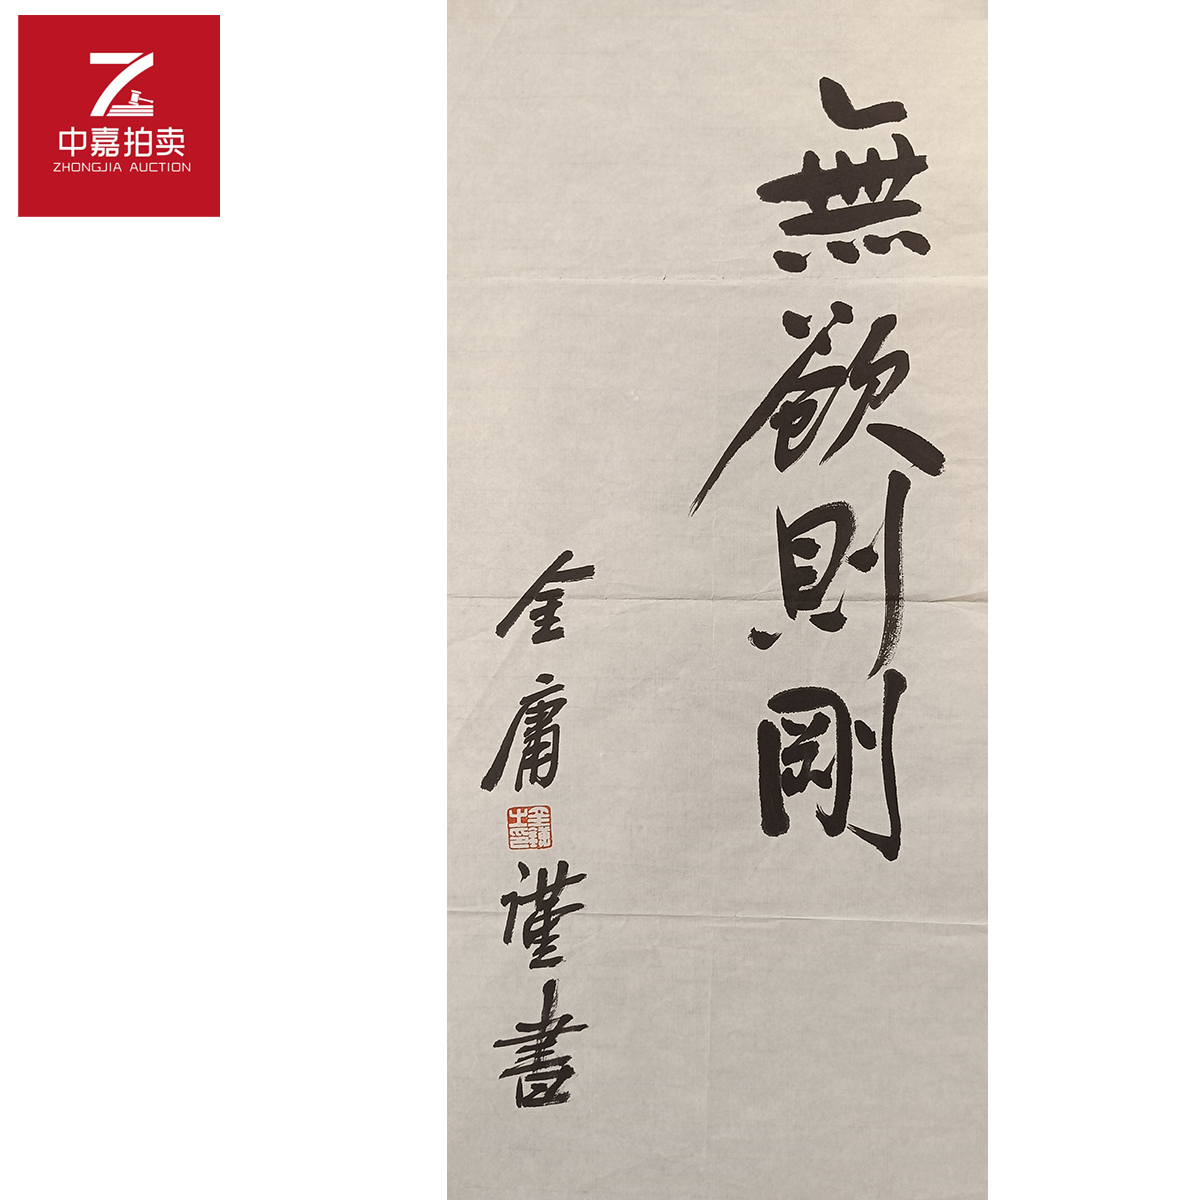 中嘉拍卖
ZHONGJIA AUCTION
無欲則剛
金庸
謹書